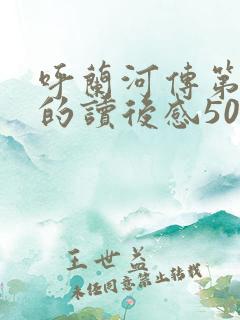 呼蘭河傳第
的讀後感50
王世益
未任同意禁止转载